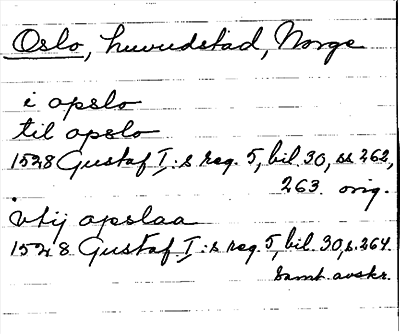 Oslo, huvudstad, Norge
i opslo
til opslo
1528 Gustaf I:s reg. 5, bil. 30, ss 262,
263. orig.
vtij opslaa
1528 Gustaf I:s reg. 5, bil. 30, s. 264.
Samt. avskr.